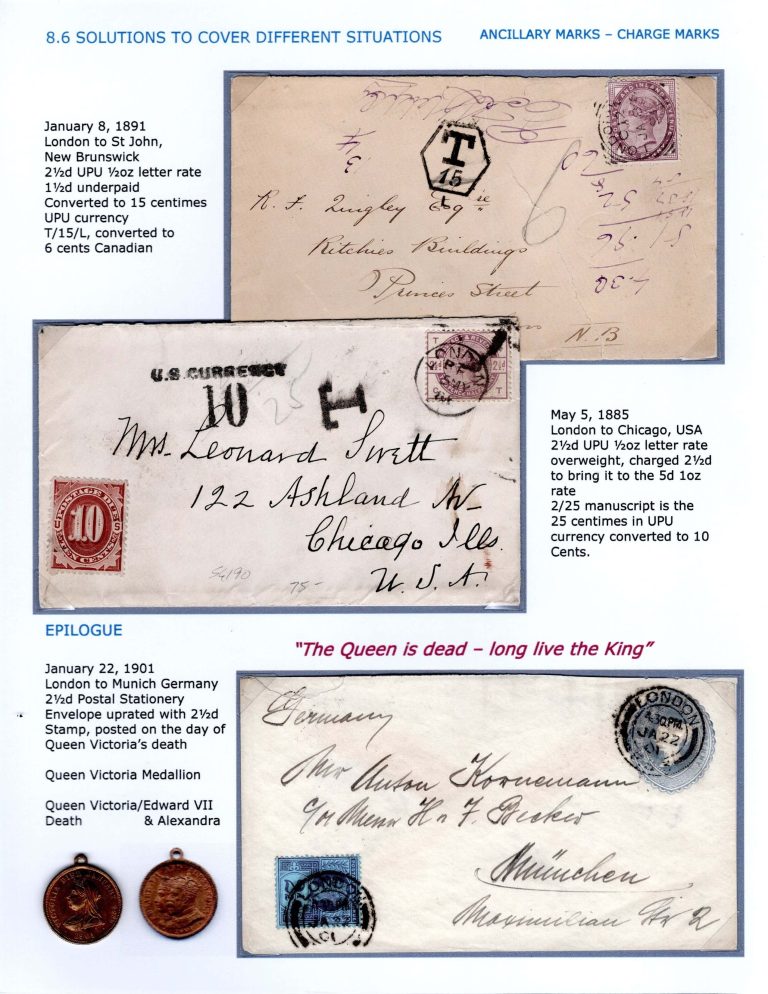 8.6 SOLUTIONS TO COVER DIFFERENT SITUATIONS
ANCILLARY MARKS – CHARGE MARKS
January 8, 1891
London to St John,
New Brunswick
2½d UPU ½oz letter rate
1½d underpaid
Converted to 15 centimes
UPU currency
T/15/L, converted to
6 cents Canadian
T
15
L
R. F. Quigley Esqre
Ritchies Buildings
Princes Street
N.B
U.S. CURRENCY
10
T
25
LONDON
Mrs. Leonard Swett
122 Ashland Av
Chicago Ills.
U.S.A.
POSTAGE DUE
10
TEN CENTS
75-
May 5, 1885
London to Chicago, USA
2½d UPU ½oz letter rate
overweight, charged 2½d
to bring it to the 5d 1oz
rate
2/25 manuscript is the
25 centimes in UPU
currency converted to 10
Cents.
EPILOGUE
"The Queen is dead – long live the King"
January 22, 1901
London to Munich Germany
2½d Postal Stationery
Envelope uprated with 2½d
Stamp, posted on the day of
Queen Victoria's death
Queen Victoria Medallion
Queen Victoria/Edward VII
Death & Alexandra
Germany
Mr Anton Kornemann
München
Maximilian Str 2
LONDON
4.30PM
JA 22
01
LONDON
JA 22
01